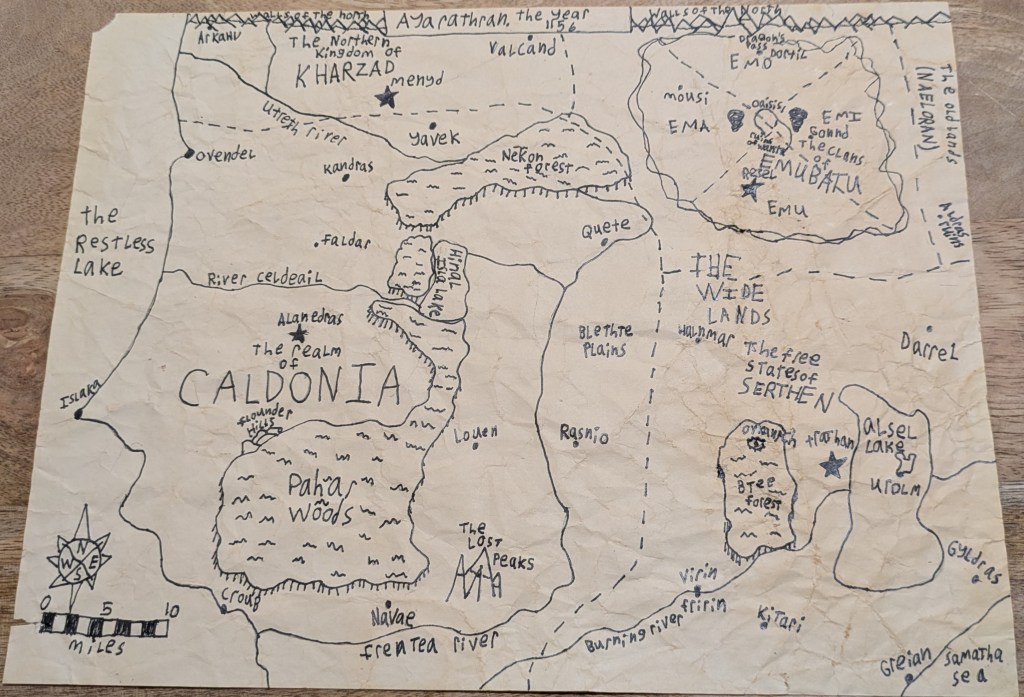 Walls of the North
Ayarathran, the year
1156
Walls of the North
Arkanu
The Northern
Kingdom of
KHARZAD
menyd
Valcand
Utreth river
yavek
ovendel
Kandras
Nekon
forest
Dragon's
Pass
Dortil
EMO
mousi
EMA
Oaisis
EMI
Sound
The clans
of
EMUBATU
Refel
EMU
The old lands
(NAELORAN)
Ruins
the
Restless
Lake
faldar
River celdeail
Hinal
Lake
Quete
THE
WIDE
LANDS
Alanedras
The realm
of
CALDONIA
Islaka
flounder
Hills
Blethte
Plains
Walnmar
The free
states of
SERTHEN
Darrel
Louen
Rasnio
trathan
alsel
Lake
urolm
BTee
forest
Pahar
Woods
The
Lost
Peaks
N
W E
S
0 5 10
miles
Croub
Navae
frentea river
Burning river
Virin
fririn
Kitari
Gyldras
Greian
Samatha
sea